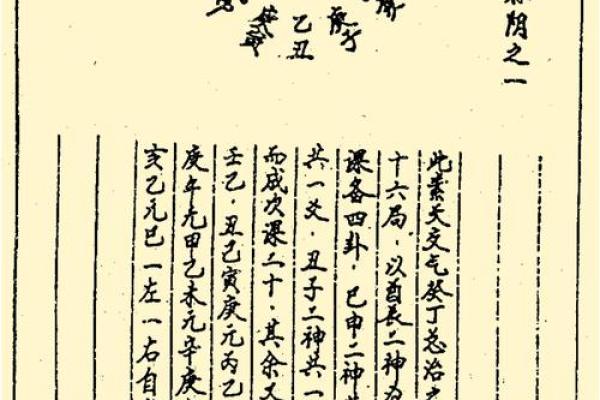 阴之一
乙丑
此素天交气癸丁总治之
十六局．以酉辰二神为
课备四卦．巳申二神共
共一爻．丑子二神共一
而成次课二十．其余又
壬乙．丑己寅庚元丙乙
庚午元甲乙未元辛庚
亥乙元巳一左一右自